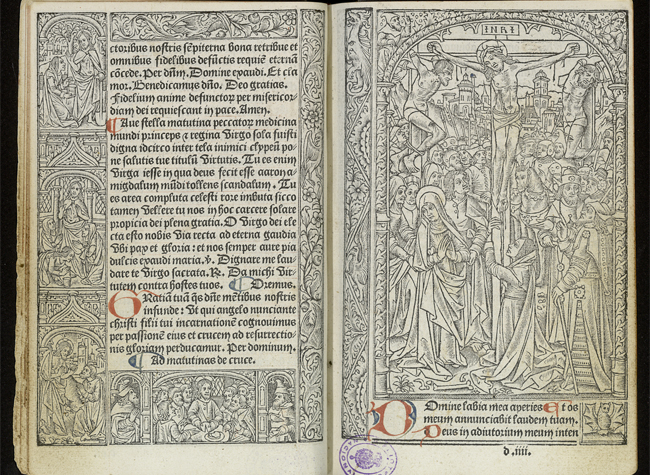 ctoribus nostris sẽpiterna bona retribue et
omnibus fidelibus defũctis requiẽ eternã
cõcede. Per dñm. Domine exaudi. Et cla
mor. Benedicamus dño. Deo gratias.
Fidelium anime defunctor per misericor
diam dei requiescant in pace. Amen.
¶ Aue stella matutina peccator medicina
mundi princeps et regina Virgo sola fuisti
digna idcirco inter tela inimici clypeũ po
ne salutis tue titulũ Virtutis. Tu es enim
Virga iesse in qua deus fecit esse aaron a
migdalum mũdi tollens scandalum. Tu
es area compluta celesti rore imbuta sicco
tamen Vellere tu nos in hoc carcere solare
propicia dei plena gratia. O Virgo dei ele
cta esto nobis Via recta ad eterna gaudia
Vbi pax et gloria: et nos semper aure pia
dulcis exaudi maria. ꝟ. Dignare me lau
dare te Virgo sacrata. R. Da michi Vir
tutem contra hostes tuos. ¶ Oremus.
Gratiã tuã q̃s dñe mẽtibus nostris
infunde: Vt qui angelo nunciante
christi filii tui incarnationẽ cognouimus
per passionẽ eius et crucem ad resurrectio
nis gloriam perducamur. Per dominum.
¶ Ad matutinas de cruce.
INRI
Domine labia mea aperies Et os
meum annunciabit laudem tuam.
Deus in adiutorium meum inten
d.iiii.